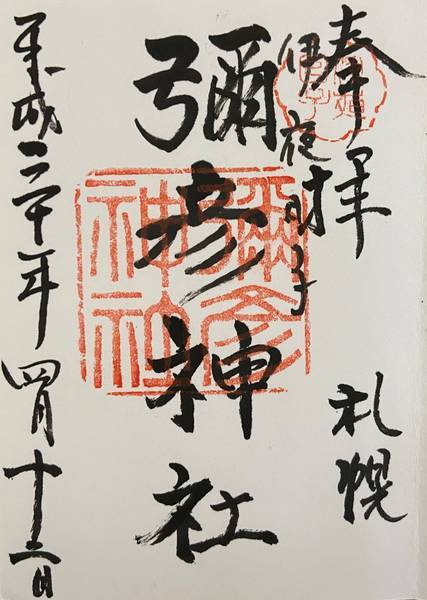 奉拝
札幌
伊夜日子
彌彦神社
平成三十年四月十三日
彌彦神社